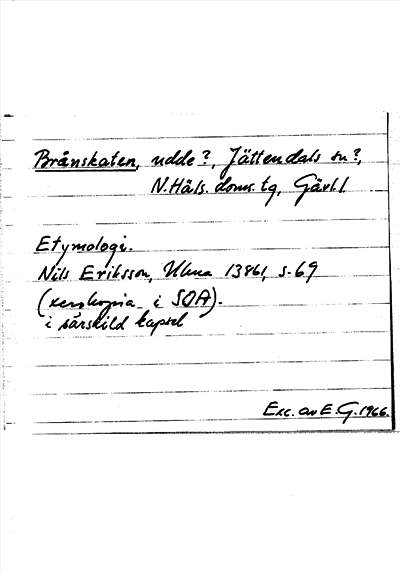 Brånskaten, udde?, Jättendals sn?,
N.Häls. doms. tg, Gävl.l.
Etymologi.
Nils Eriksson, Uluа 13861, s. 69
(xerokopia i SOA).
i särskild kapsel
Exc. av E.G. 1966.